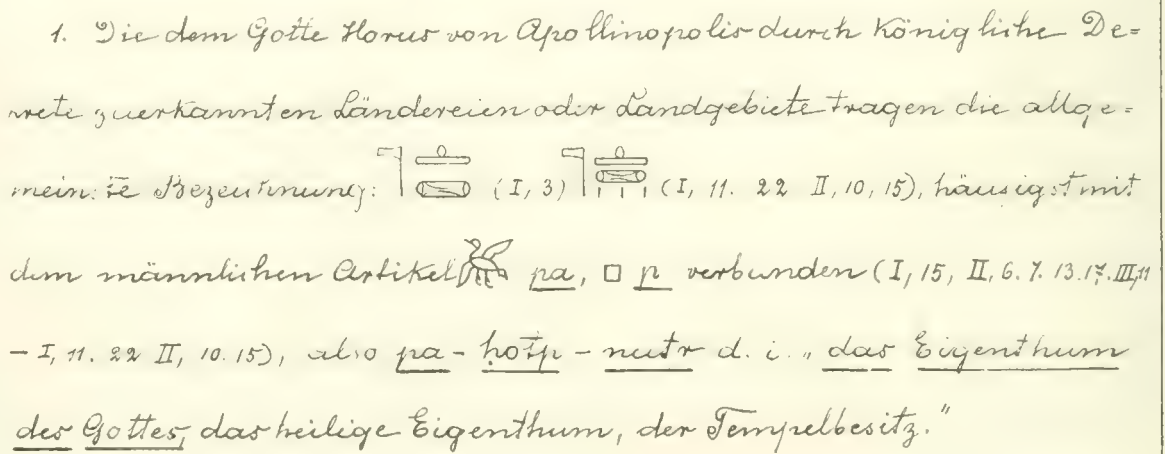 1. Die dem Gotte Horus von Apollinopolis durch Königliche De=
crete zuerkannten Ländereien oder Landgebiete tragen die allge=
meinste Bezeichnung: 𓊹𓊵 (I, 3) 𓊹𓊵 (I, 11. 22 II, 10, 15), häufigst mit
dem männlichen Artikel 𓅮 pa, □ p verbunden (I, 15, II, 6. 7. 13. 17. III, 11
– I, 11. 22 II, 10. 15), also pa - ḥotp - nutr d. i. „das Eigenthum
des Gottes, das heilige Eigenthum, der Tempelbesitz."